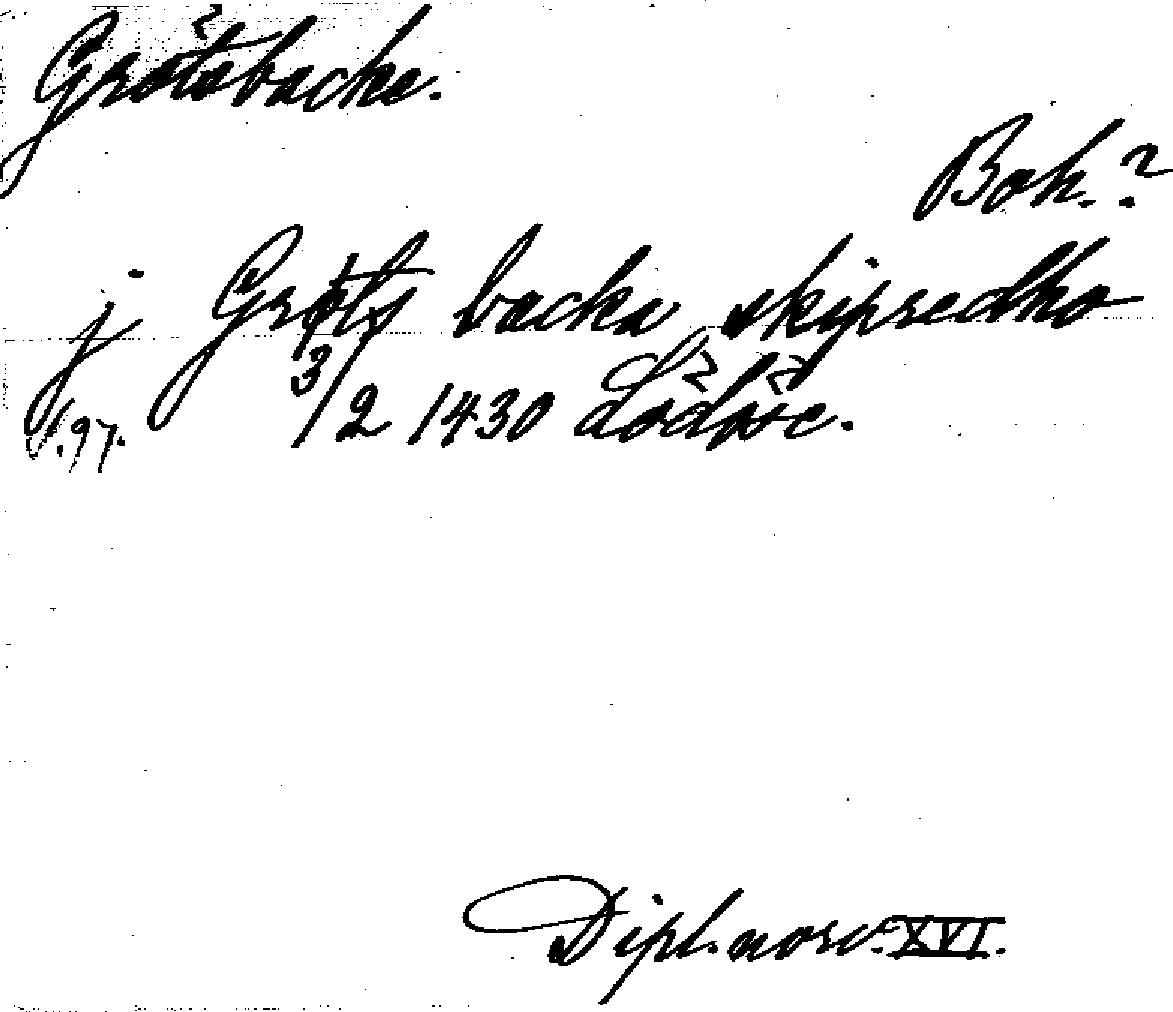 Grötsbacka.
Boh.?
j Grøts backa skipredho
s. 97. 3/2 1430 Lödöse.
Dipl. norv. XVI.